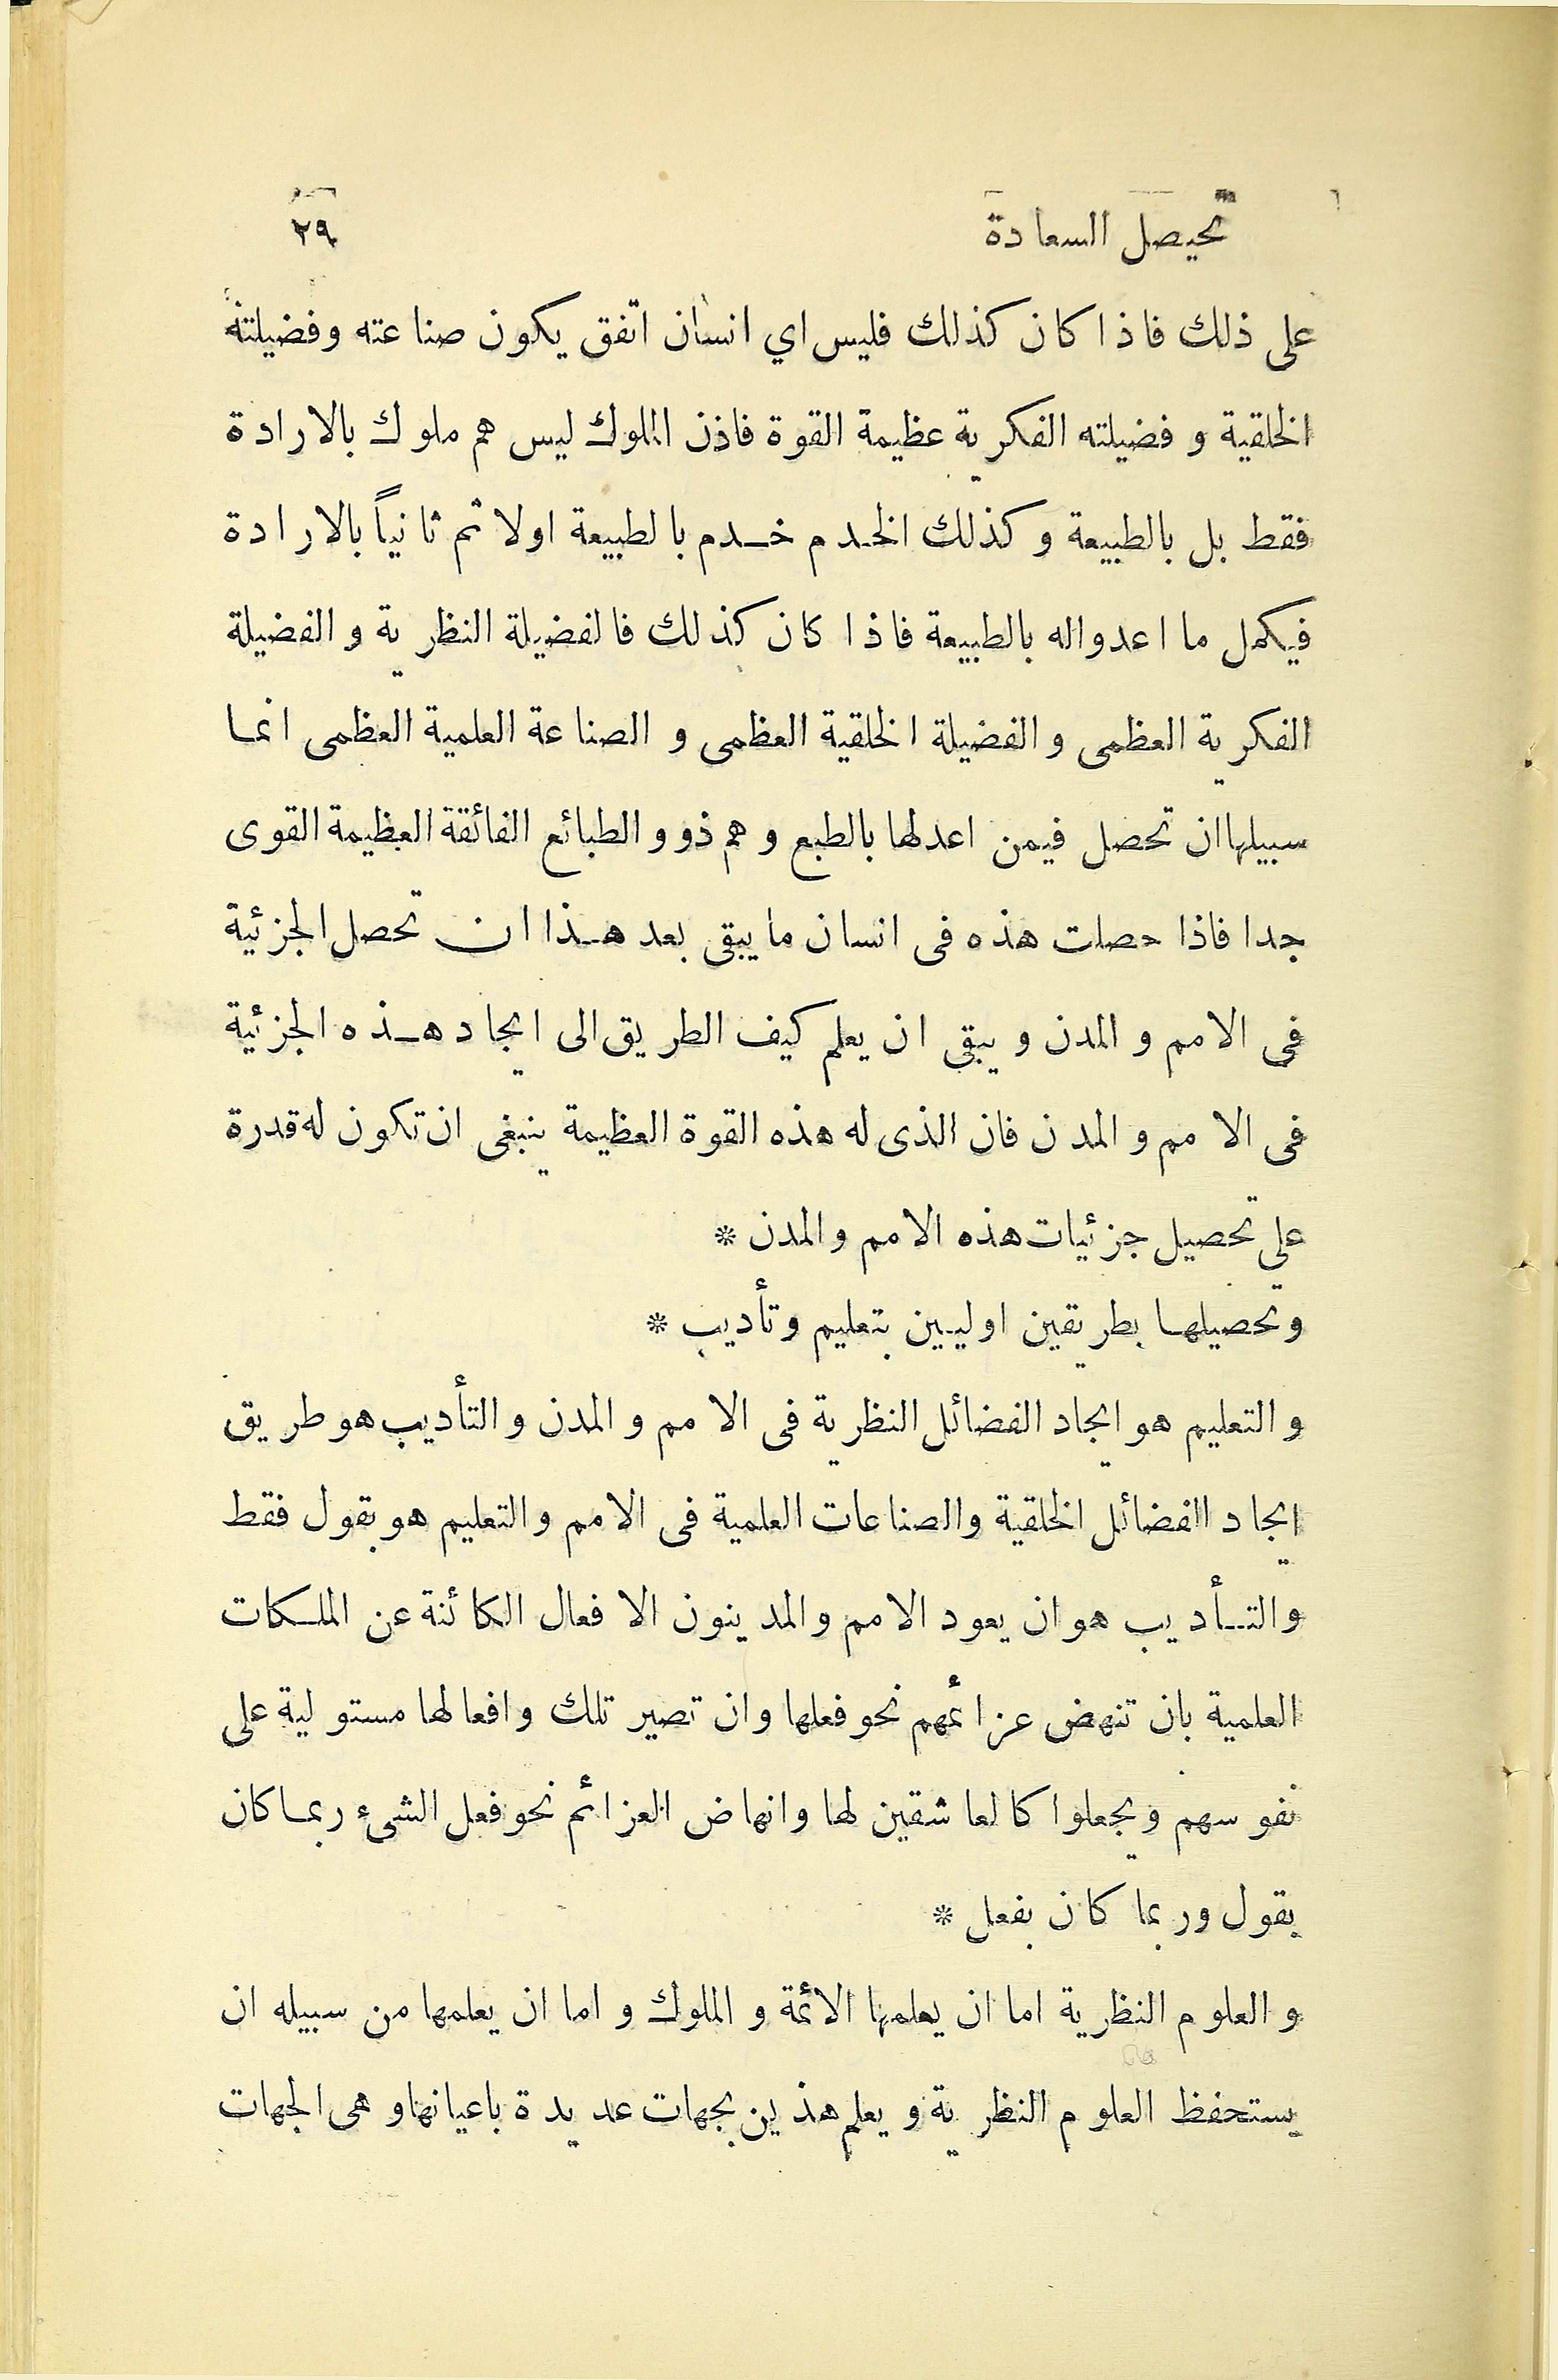 تحيصل السعادة ٢٩
على ذلك فاذا كان كذلك فليس اي انسان اتفق يكون صناعته وفضيلته
الخلقية و فضيلته الفكرية عظيمة القوة فاذن الملوك ليس هم ملوك بالارادة
فقط بل بالطبيعة و كذلك الخدم خدم بالطبيعة اولا ثم ثانياً بالارادة
فيكمل ما اعدواله بالطبيعة فاذا كان كذلك فالفضيلة النظرية و الفضيلة
الفكرية العظمى و الفضيلة الخلقية العظمى و الصناعة العلمية العظمى انما
سبيلها ان تحصل فيمن اعدلها بالطبع و هم ذوو الطبائع الفائقة العظيمة القوى
جدا فاذا حصلت هذه فى انسان ما يبقى بعد هذا ان تحصل الجزئية
فى الامم و المدن و يبقى ان يعلم كيف الطريق الى ايجاد هذه الجزئية
فى الامم و المدن فان الذى له هذه القوة العظيمة ينبغى ان تكون له قدرة
على تحصيل جزئيات هذه الامم والمدن *
وتحصيلها بطريقين اوليين بتعليم وتأديب *
و التعليم هو ايجاد الفضائل النظرية فى الامم و المدن و التأديب هو طريق
ايجاد الفضائل الخلقية والصناعات العلمية فى الامم و التعليم هو بقول فقط
والتأديب هو ان يعود الامم والمدينون الافعال الكائنة عن الملكات
العلمية بان تنهض عزائمهم نحو فعلها وان تصير تلك وافعالها مستولية على
نفوسهم ويجعلوا كالعاشقين لها وانهاض العزائم نحو فعل الشىء ربما كان
بقول وربما كان بفعل *
و العلوم النظرية اما ان يعلمها الأئمة و الملوك و اما ان يعلمها من سبيله ان
يستحفظ العلوم النظرية و يعلم هذين بجهات عديدة باعيانها و هى الجهات